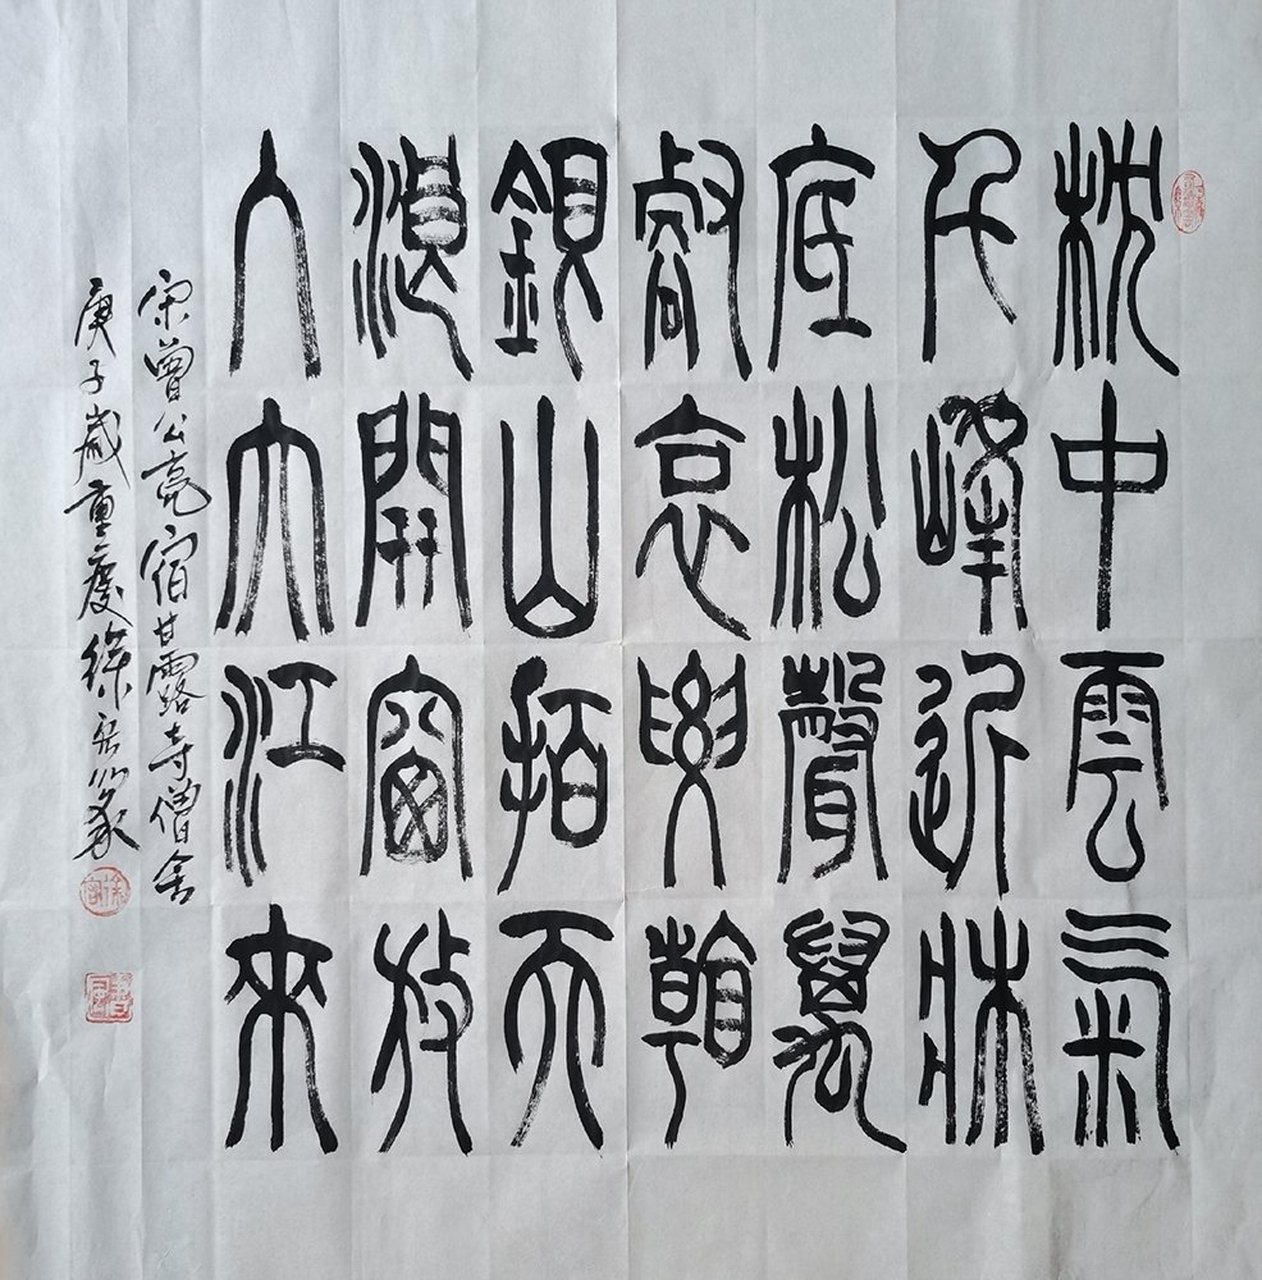 枕中雲氣
千峰近牀
底松聲萬
壑哀要看
銀山拍天
浪開窗放
入大江來
宋曾公亮宿甘露寺僧舍
庚子歲重慶徐篆